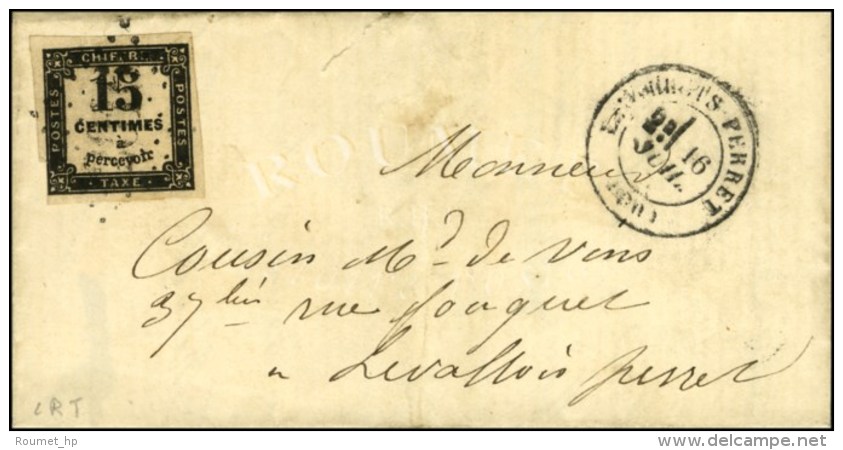 CHIFFRE
POSTES
15
CENTIMES
à
percevoir
POSTES
TAXE
PERRET
16
JUIL.
Monsieur
Cousin Md de Vins
37 bis rue fouquet
a Levallois perret
Roumet_hp
www.delcampe.net